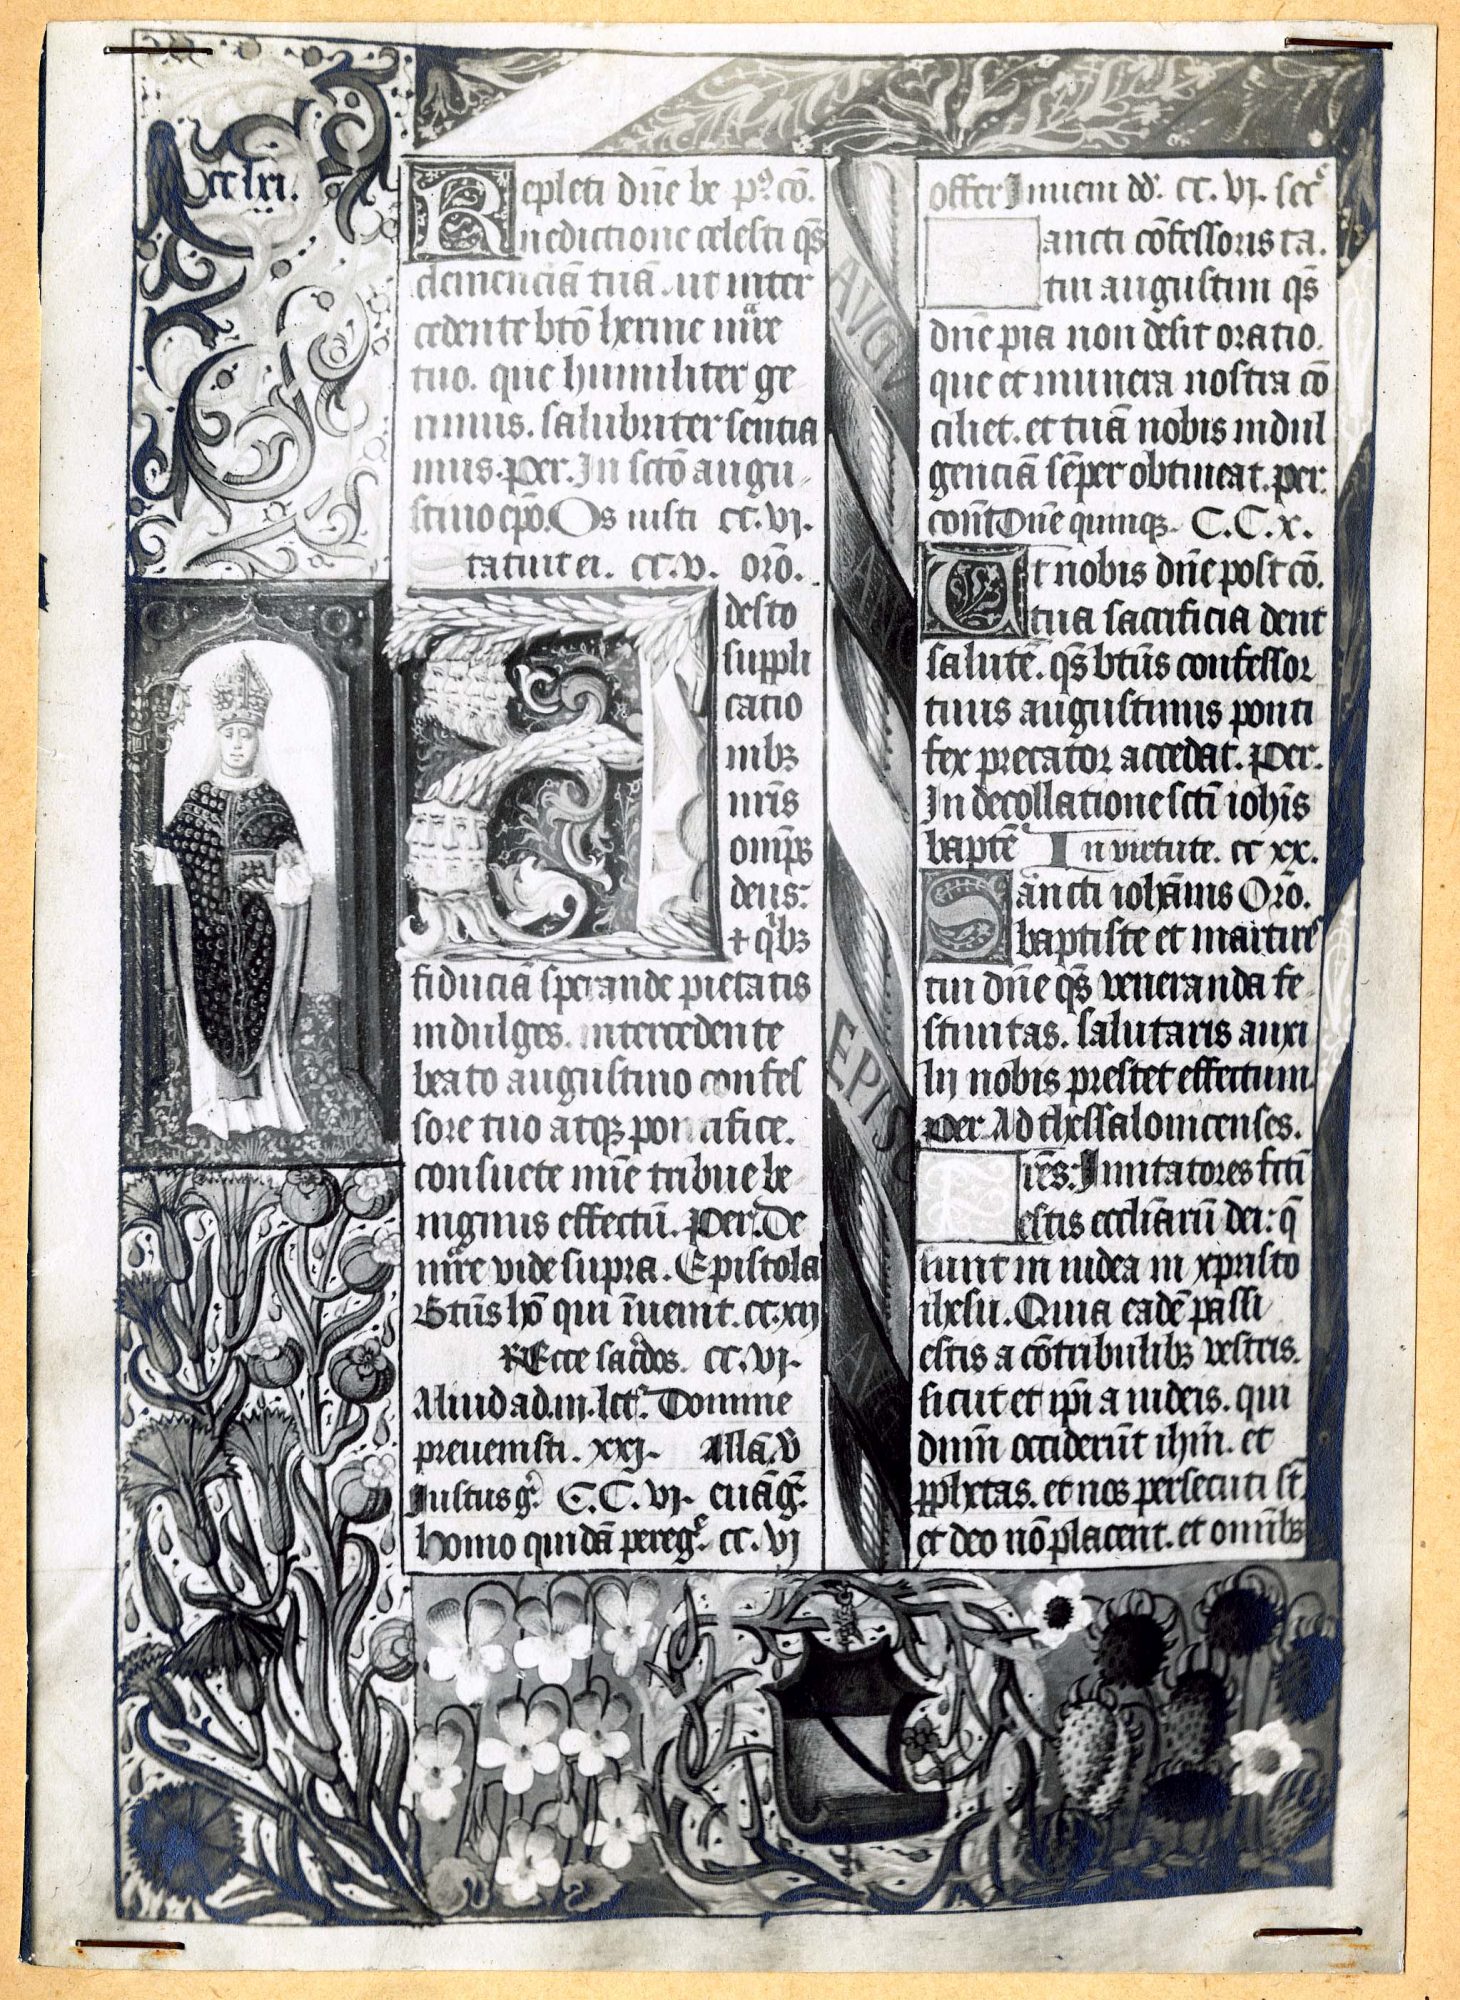 cclxi.
Repleti dn̄e be p⁹. cō.
nedictione celesti qs̄
clemenciā tuā. ut inter
cedente bt̄o herme mr̄e
tuo. que humiliter ge
rimus. salubriter sentia
mus. per. In sct̄o augu
stino ep̄o. Os iusti cc. vj.
tatuit ei. cc. v. oro̅.
Adesto
suppli
catio
nibꝫ
nr̄is
omp̄s
deus:
⁊ qͥbꝫ
fiduciā sperande pietatis
indulges. intercedente
beato augustino confes
sore tuo atqꝫ pontifice.
consuete mīe tribue be
nignus effectū. Per. De
mr̄e vide supra. Epistola
Btūs hō qui īuenit. cc. xij
℟ Ecce sacͬdos. cc. vj.
Aliud ad. iij. lct̄. Domine
prevenisti. xxj. All̄a. v̄
Iustus gͬ. C. C. vj. euāg̅.
homo quidā peregͤ. cc. vj
offer Inveni dd̄. cc. vj. secͬ
ancti cōfessoris ta.
tui augustini qs̄
dn̄e pia non desit oratio.
que et munera nostra cō
ciliet. et tuā nobis indul
genciā sēper obtineat. per.
com̄ Dn̄e quinqꝫ. C. C. x.
Ut nobis dn̄e post cō.
tua sacrificia dent
salutē. qs̄ bt̄us confessor
tuus augustinus ponti
fex precator accedat. Per.
In decollatione sct̄i ioh̄is
baptē In virtute. cc xx.
Sancti ioh̄anis Oro̅.
baptiste et martiris
tui dn̄e qs̄ veneranda fe
stivitas. salutaris auxi
lij nobis prestet effectum.
Per Ad thessalonicenses.
Fr̄es: Imitatores fct̄i
estis eccl̄iarū dei: q̄
sunt in iudea in xpristo
ihesu. Quia eadē passi
estis a cōtribulibꝫ vestris.
sicut et ip̄i a iudeis. qui
dnm̄ occiderūt ihm̄. et
ꝓphetas. et nos persecuti st̄
et deo nō placent. et omībꝫ
AVGV
EPISC